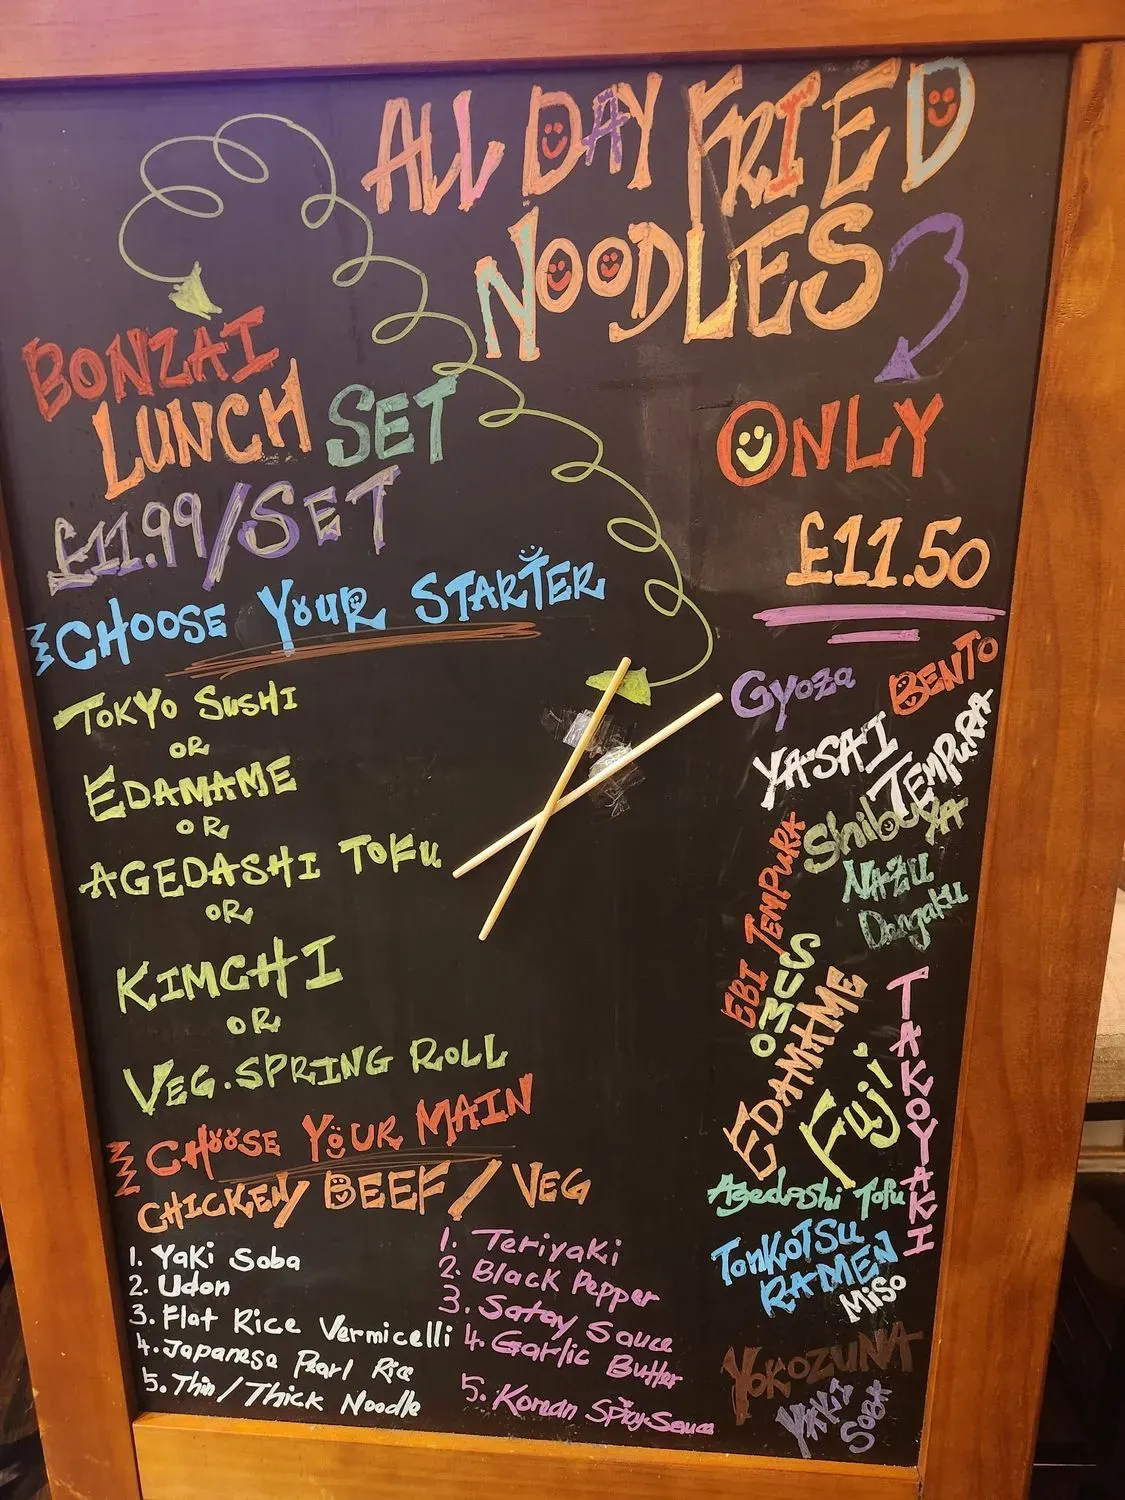 ALL DAY FRIED
NOODLES
ONLY
£11.50
BONZAI
LUNCH SET
£11.99/SET
CHOOSE YOUR STARTER
TOKYO SUSHI
OR
EDAMAME
OR
AGEDASHI TOFU
OR
KIMCHI
OR
VEG. SPRING ROLL
CHOOSE YOUR MAIN
CHICKEN/ BEEF / VEG
1. Yaki Soba
2. Udon
3. Flat Rice Vermicelli
4. Japanese Pearl Rice
5. Thin / Thick Noodle
1. Teriyaki
2. Black Pepper
3. Satay Sauce
4. Garlic Butter
5. Korean Spicy Sauce
Gyoza
BENTO
YASAI
TEMPURA
Shibuya
NAZU
Dengaku
EBI TEMPURA
SUMO
EDAMAME
Fuji
TAKOYAKI
Agedashi Tofu
TONKOTSU
RAMEN
MISO
YOKOZUNA
YAKI
SOBA